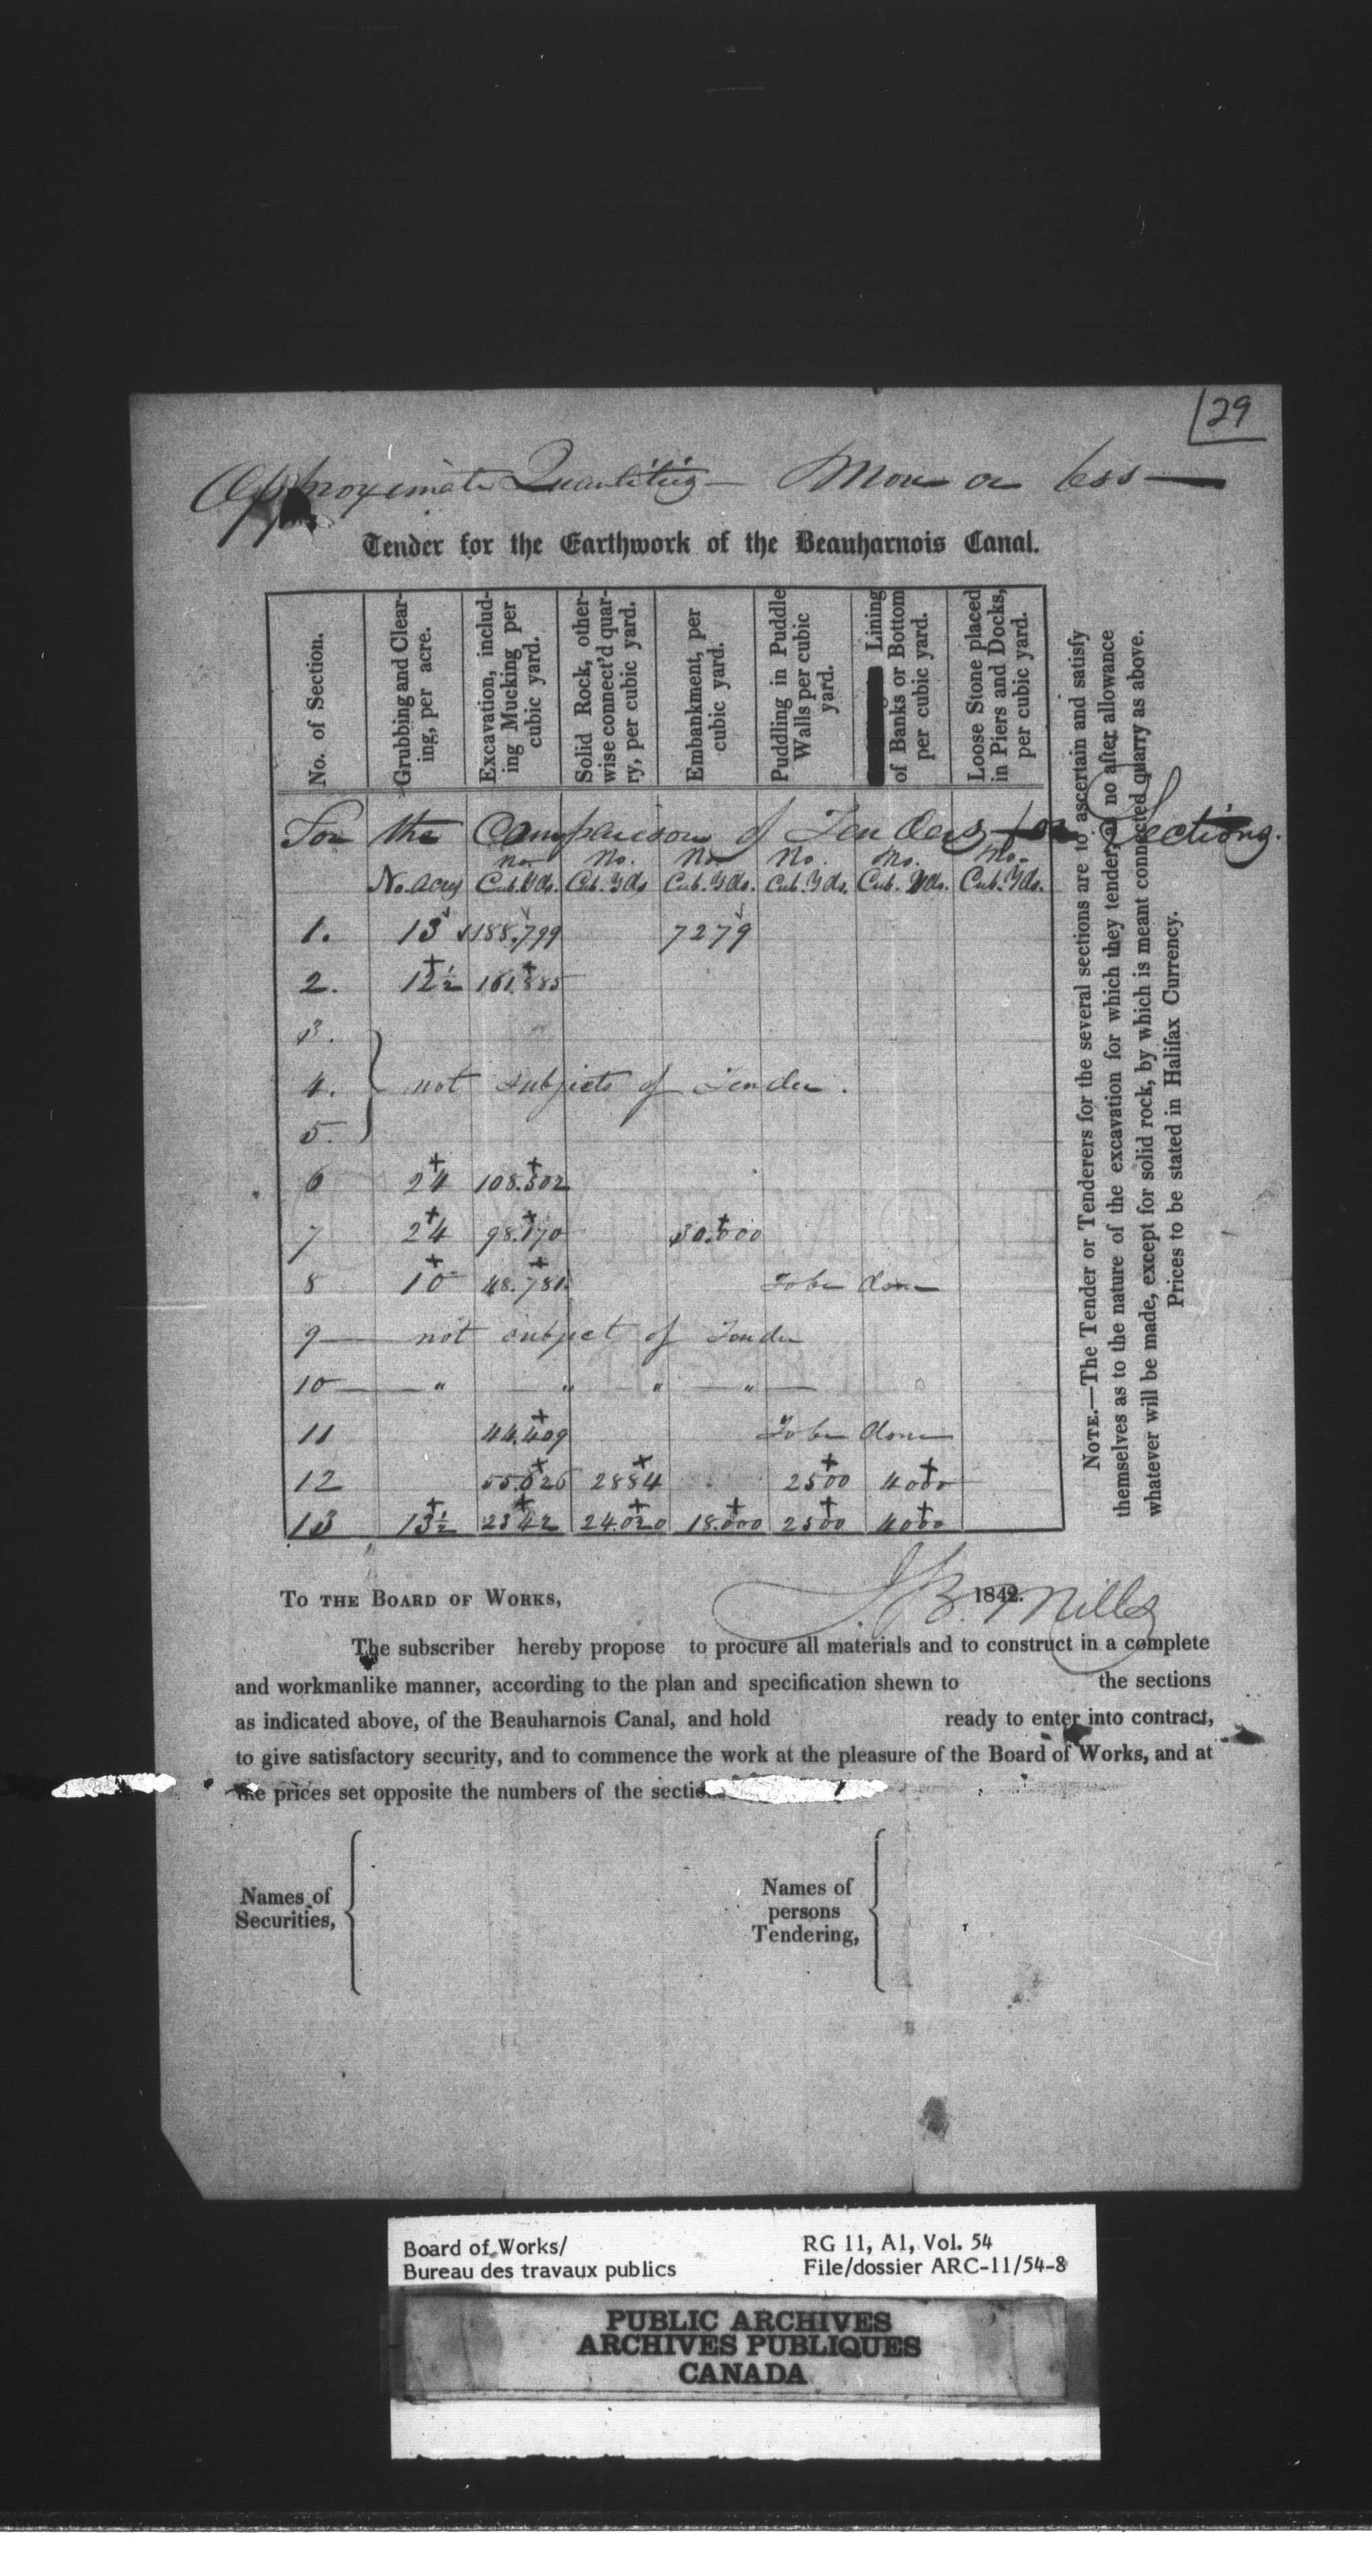 29
Approximate Quantities — More or less —
Tender for the Earthwork of the Beauharnois Canal.
No. of Section.
Grubbing and Clear-
ing, per acre.
Excavation, includ-
ing Mucking per
cubic yard.
Solid Rock, other-
wise connect'd quar-
ry, per cubic yard.
Embankment, per
cubic yard.
Puddling in Puddle
Walls per cubic
yard.
Lining
of Banks or Bottom
per cubic yard.
Loose Stone placed
in Piers and Docks,
per cubic yard.
For the Comparison of Tenders for Sections.
No. No. No. No. No. No.
No. acres Cub. Yds. Cub. Yds Cub. Yds. Cub. Yds. Cub. Yds. Cub. Yds.
1. 13 188.799 7279
2. 12½ 161.885
3.
4. } not subjects of Tender.
5.
6 24 108.502
7 24 98.170 30.000
8 10 48.781. To be done
9 — not subject of Tender
10 — " — " — " — " —
11 44.409 To be done
12 55.626 2884 2500 4000
13 13½ 2342 24.020 18.000 2500 4000
NOTE.—The Tender or Tenderers for the several sections are to ascertain and satisfy
themselves as to the nature of the excavation for which they tender, as no after allowance
whatever will be made, except for solid rock, by which is meant connected quarry as above.
Prices to be stated in Halifax Currency.
TO THE BOARD OF WORKS, 1842.
J. B. Mills
The subscriber hereby propose to procure all materials and to construct in a complete
and workmanlike manner, according to the plan and specification shewn to the sections
as indicated above, of the Beauharnois Canal, and hold ready to enter into contract,
to give satisfactory security, and to commence the work at the pleasure of the Board of Works, and at
the prices set opposite the numbers of the sectio
Names of
Securities,
Names of
persons
Tendering,
Board of Works/
Bureau des travaux publics
RG 11, A1, Vol. 54
File/dossier ARC-11/54-8
PUBLIC ARCHIVES
ARCHIVES PUBLIQUES
CANADA